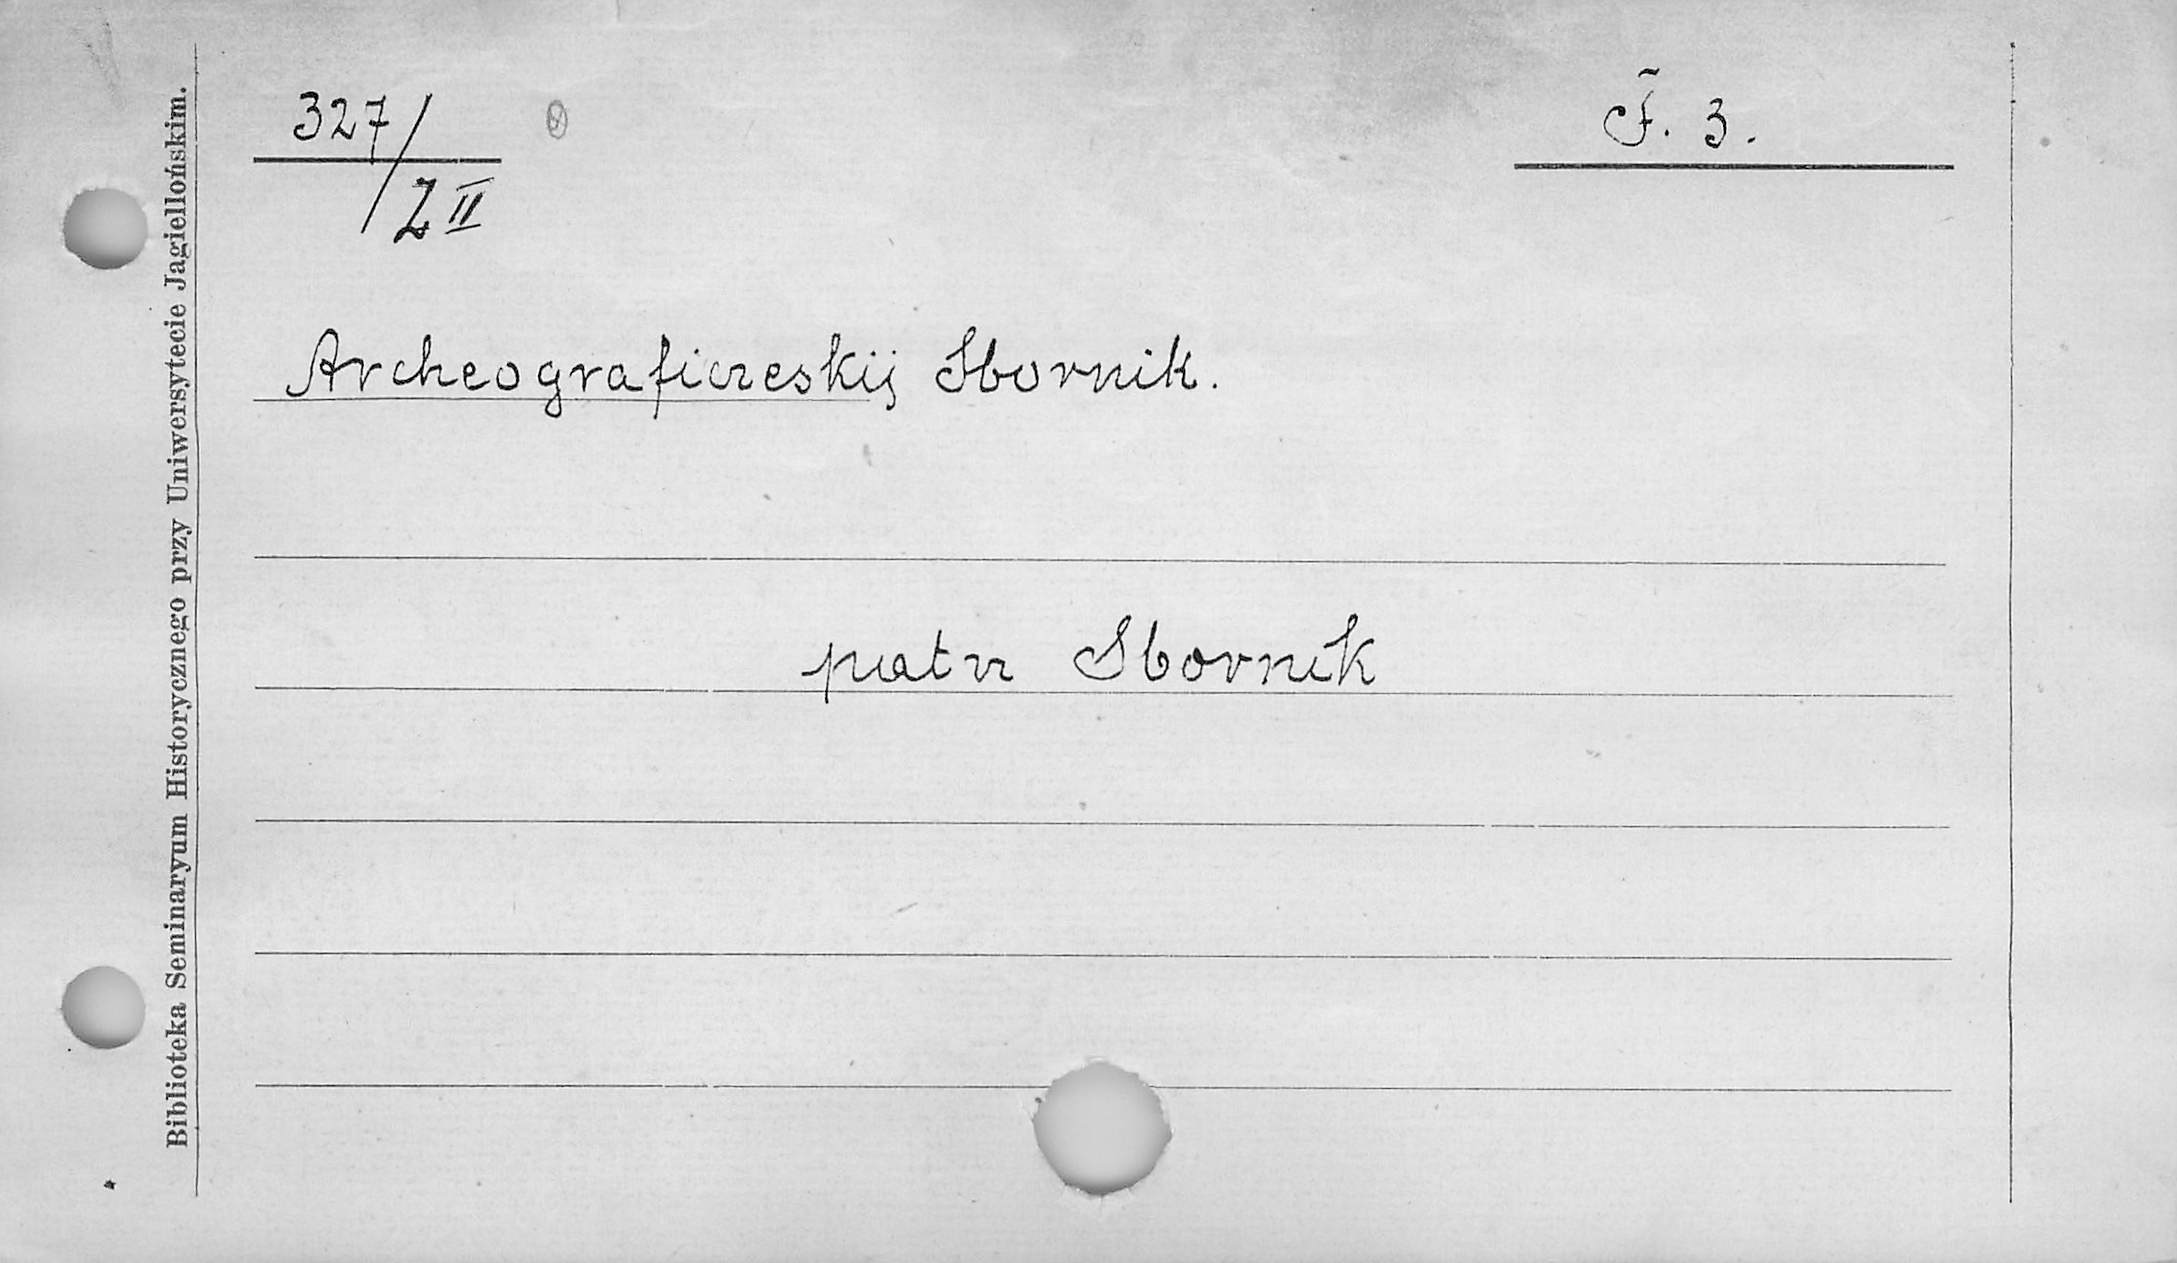 327/Z II
F. 3.
Archeograficzeskij Sbornik.
patrz Sbornik
Biblioteka Seminaryum Historycznego przy Uniwersytecie Jagiellońskim.